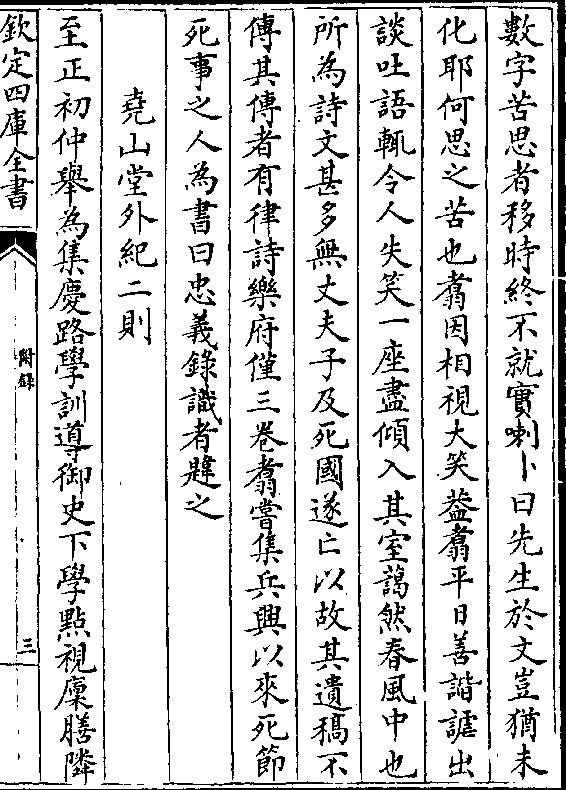 數字苦思者移時終不就實喇卜曰先生於文豈猶未
化耶何思之苦也翥因相視大笑葢翥平日善諧謔出
談吐語輒令人失笑一座盡傾入其室藹然春風中也
所為詩文甚多無丈夫子及死國遂亡以故其遺稿不
傳其傳者有律詩樂府僅三卷翥嘗集兵興以來死節
死事之人為書曰忠義錄識者韙之
堯山堂外紀二則
至正初仲舉為集慶路學訓導御史下學點視廩膳隣
欽定四庫全書
附錄
三